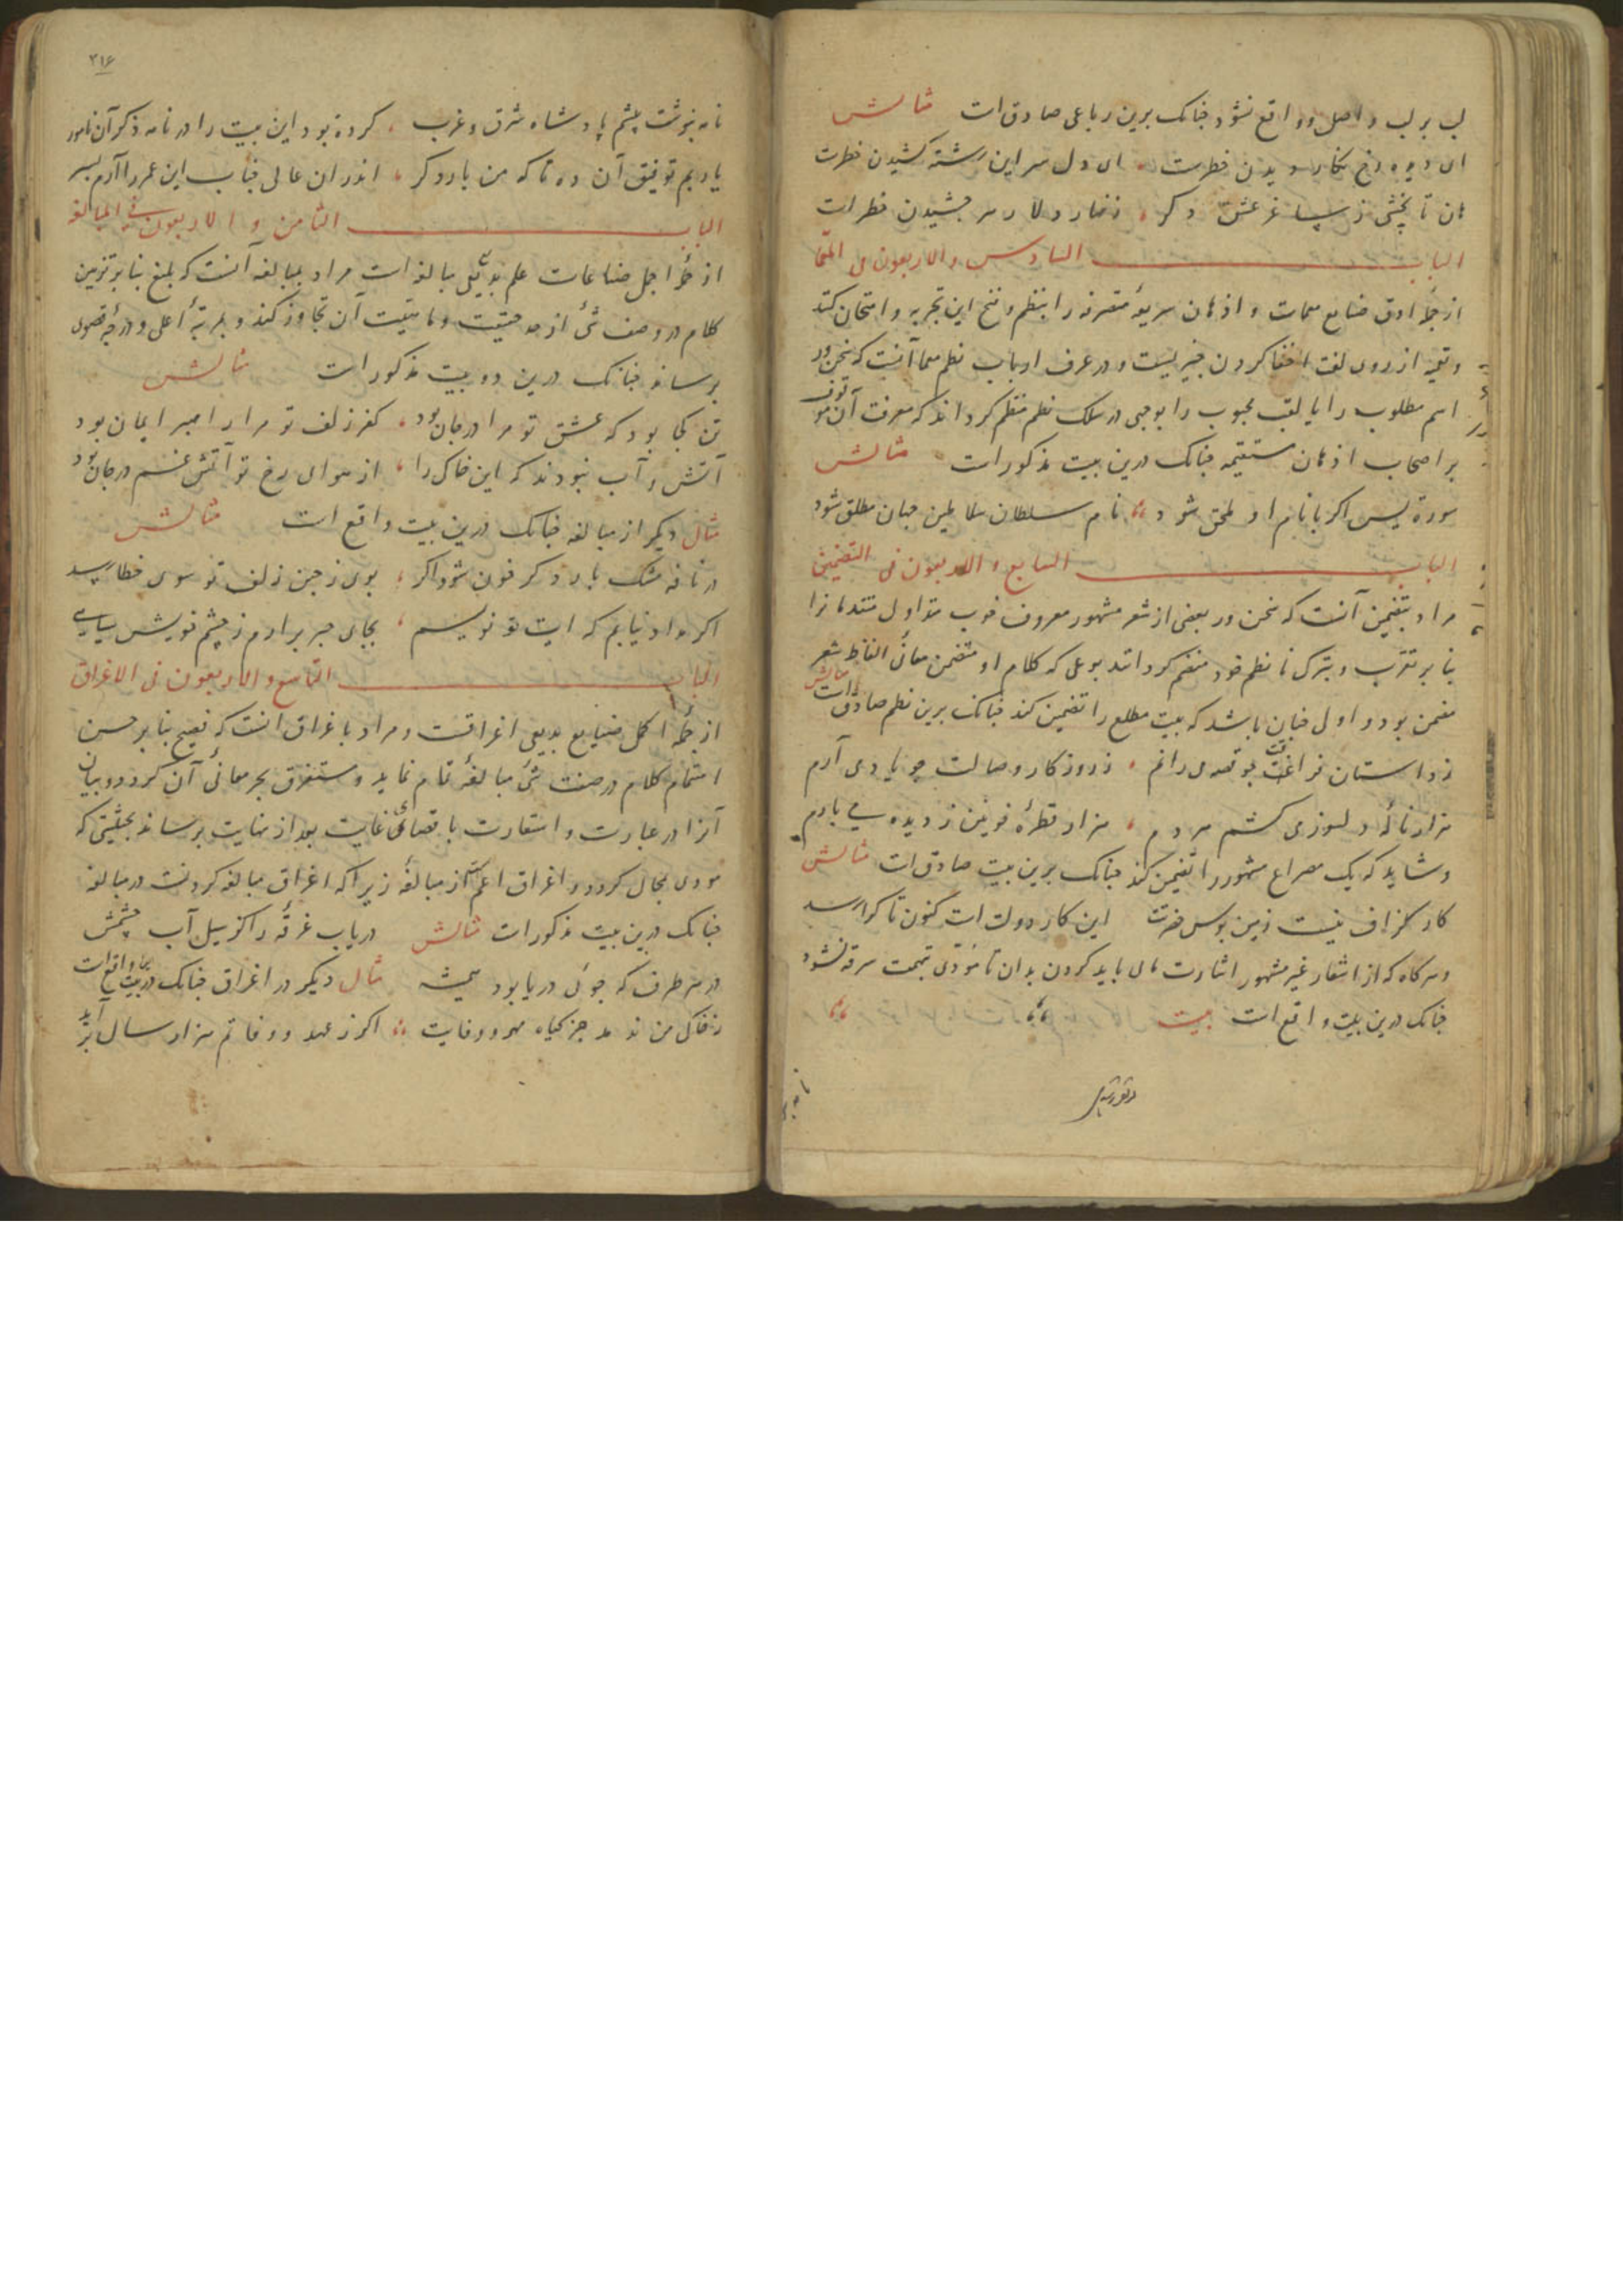 لب بر لب واصل و واقع نشود چنانک برین رباعی صادق است مثالش
ای دیده رخ نکار دیدن خطرست ای دل سر این رشته کشیدن خطرست
هان تا نچشی ز ساغر عشق دکر زنهار دلا زهر چشیدن خطر است
الباب السادس والاربعون فی المعما
از جملهٔ ادق صنایع معمات و اذهان سریعهٔ متفرسه را بنظم و نسخ این تجربه و امتحان کنند
و تعمیه از روی لغت اخفا کردن چیزیست و در عرف ارباب نظم معما آنست که سخن ور
اسم مطلوب را یا لقب محبوب را بوجهی در سلک نظم منتظم کرداند که معرفت آن موقوف
بر اصحاب اذهان مستقیمه چنانک درین بیت مذکور است مثالش
سورة یس اکر با نام او ملحق شود نام سلطان سلاطین جهان مطلق شود
الباب السابع والاربعون فی التضمین
مراد بتضمین آنست که سخن ور بعضی از شعر مشهور معروف خوب متداول متقدمانرا
بنا بر تقرب و تبرک با نظم خود منضم کرداند بوعلی که کلام او متضمن معانی الفاظ شعر
مضمن بود و اول چنان باشد که بیت مطلع را تضمین کند چنانک برین نظم صادق است مثالش
ز داستان فراغت چو قصهٔ رانم ز روزکار وصالت چو یادی آرم
هزار نالهٔ دلسوزی کشم هر دم هزار قطرهٔ خونین ز دیده می بارم
و شاید که یک مصراع مشهور را تضمین کند چنانک برین بیت صادق است مثالش
کار کزاف نیست زمین بوس حضرت این کار دولت است کنون تا کرا رسد
و هرکاه که از اشعار غیر مشهور اشارت های باید کردن بدان تا مؤدی بتهمت سرقه نشود
چنانک درین بیت واقع است بیت
۲۱۶
نامه بنوشت پیشم پادشاه شرق و غرب کرده بود این بیت را در نامه ذکر آن نامور
یا ربم توفیق آن ده تا که من بار دکر اندران عالی جناب این عمر را آرم بسر
الباب الثامن والاربعون فی المبالغه
از جملهٔ اجمل صناعات علم بدیعی مبالغه است مراد بمبالغه آنست که بلیغ بنا بر تزیین
کلام در وصف شئ از حد حقیقت و ماهیت آن تجاوز کند و بمرتبهٔ اعلی و درجهٔ قصوی
برساند چنانک درین دو بیت مذکور است مثالش
تن کجا بود که عشق تو مرا در جان بود کفر زلف تو مرا راهبر ایمان بود
آتش و آب نبودند که این خاک را از هوای رخ تو آتش غم در جان بود
مثال دیکر از مبالغه چنانک درین بیت واقع است مثالش
در نافه مشک بار دکر خون شود اکر بوی ز چین زلف تو سوی خطا رسد
اکر مداد نیابم که ایت تو نویسم بجای حبر برارم ز چشم خویش سیاهی
الباب التاسع والاربعون فی الاغراق
از جملهٔ اکمل صنایع بدیعی اغراقست و مراد باغراق انست که فصیح بنا بر حسن
اهتمام کلام در صفت شئ مبالغهٔ تمام نماید و مستغرق بحر معانی آن کردد و بیان
آنرا در عبارت و استعارت باقصای غایت بعد از نهایت برساند بحیثیتی که
مودی بمحال کردد و اغراق اعم است از مبالغه زیرا که اغراق مبالغه کردنست در مبالغه
چنانک درین بیت مذکور است مثالش دریاب غرقه را کز سیل آب چشمش
در هر طرف که جوئی دریا بود همیشه مثال دیکر در اغراق چنانک درین بیت واقع است
ز خاک من ندمد جز کیاه مهر و وفایت اکر ز عهد و وفاتم هزار سال برآید